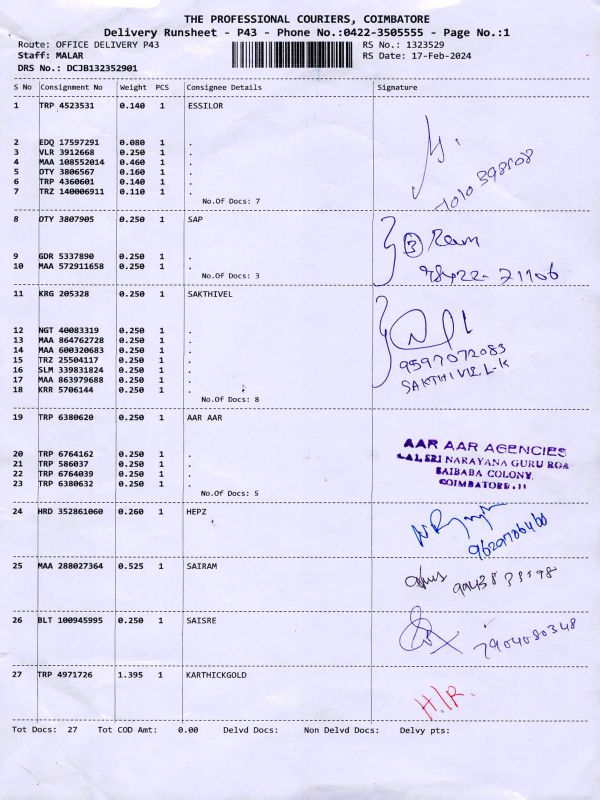 THE PROFESSIONAL COURIERS, COIMBATORE
Delivery Runsheet - P43 - Phone No.:0422-3505555 - Page No.:1
Route: OFFICE DELIVERY P43
RS No.: 1323529
Staff: MALAR
RS Date: 17-Feb-2024
DRS No.: DCJB132352901
S No Consignment No Weight PCS Consignee Details Signature
1 TRP 4523531 0.140 1 ESSILOR
2 EDQ 17597291 0.080 1 .
3 VLR 3912668 0.250 1 .
4 MAA 108552014 0.460 1 .
5 OTY 3806567 0.160 1 .
6 TRP 4360601 0.140 1 .
7 TRZ 140006911 0.110 1 .
No.Of Docs: 7
8 OTY 3807905 0.250 1 SAP
3 Ram
9 GDR 5337890 0.250 1 .
10 MAA 572911658 0.250 1 .
No.Of Docs: 3
11 KRG 205328 0.250 1 SAKTHIVEL
12 NGT 40083319 0.250 1 .
13 MAA 864762728 0.250 1 .
14 MAA 600320683 0.250 1 .
15 TRZ 25504117 0.250 1 .
16 SLM 339831824 0.250 1 .
17 MAA 863979688 0.250 1 .
18 KRR 5706144 0.250 1 .
9597072083
SAKTHIVEL.K
No.Of Docs: 8
19 TRP 6380620 0.250 1 AAR AAR
20 TRP 6764162 0.250 1 .
21 TRP 586037 0.250 1 .
22 TRP 6764039 0.250 1 .
23 TRP 6380632 0.250 1 .
No.Of Docs: 5
AAR AAR AGENCIES
SRI NARAYANA GURU ROA
SAIBABA COLONY,
COIMBATORE.11
24 HRD 352861060 0.260 1 HEPZ
25 MAA 288027364 0.525 1 SAIRAM
26 BLT 100945995 0.250 1 SAISRE
7904080348
27 TRP 4971726 1.395 1 KARTHICKGOLD
H.I.R.
Tot Docs: 27 Tot COD Amt: 0.00 Delvd Docs: Non Delvd Docs: Delvy pts: